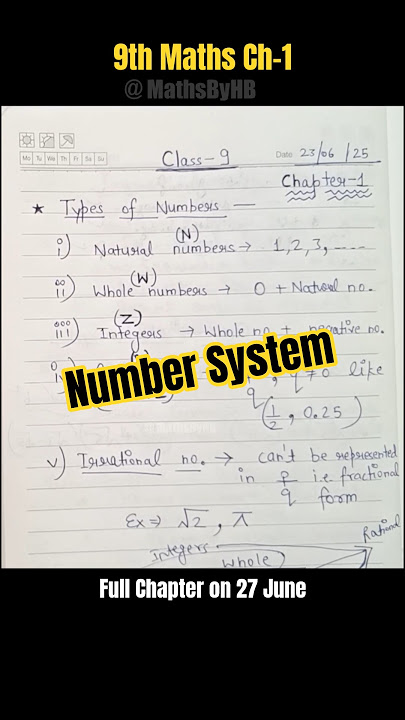 9th Maths Ch-1
@MathsByHB
Mo Tu We Th Fr Sa Su
Class-9
Date 23/06/25
Chapter-1
★ Types of Numbers —
i) Natural numbers (N) → 1,2,3, ----
ii) Whole numbers (W) → 0 + Natural no.
iii) Integers (Z) → Whole no + negative no.
q ≠ 0 like
q
(1/2, 0.25)
Number System
v) Irrational no. → can't be represented
in p/q i.e fractional
form
Ex ⇒ √2, π
Rational
Integers
Whole
Full Chapter on 27 June